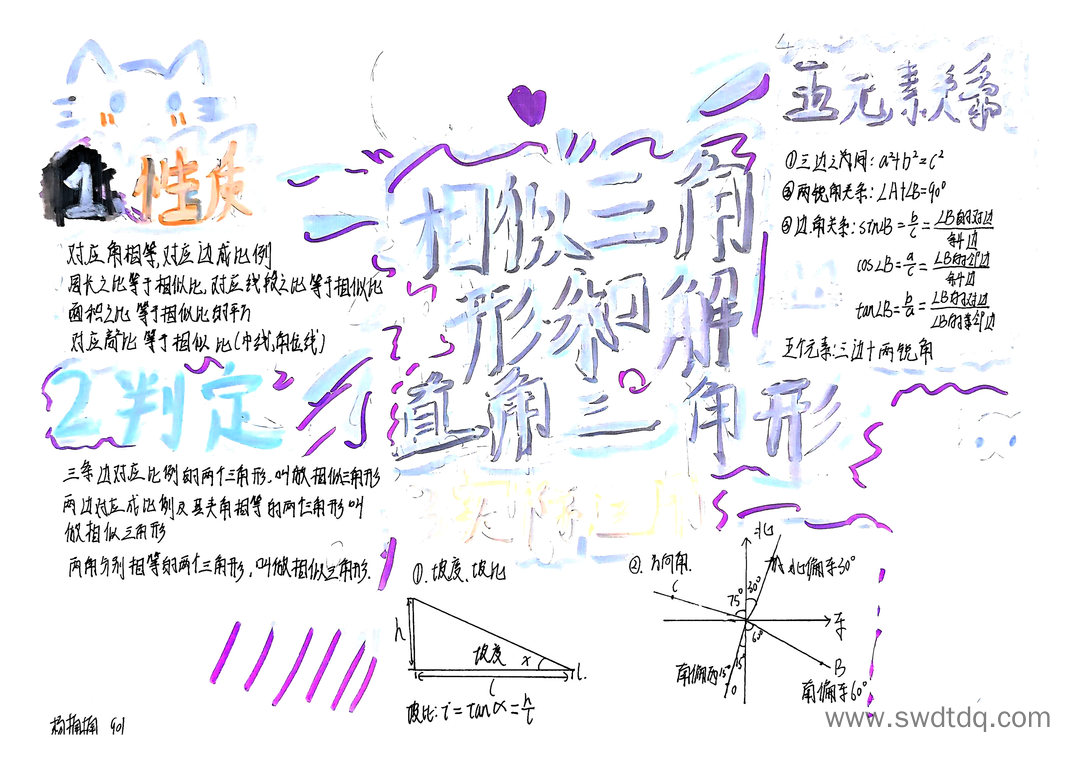 相似三角
形和解
直角三角形
1.性质
对应角相等,对应边成比例
周长之比等于相似比,对应线段之比等于相似比
面积之比等于相似比的平方
对应高比等于相似比(中线,角位线)
2判定
三条边对应比例的两个三角形,叫做相似三角形
两边对应成比例及其夹角相等的两个三角形叫
做相似三角形
两角分别相等的两个三角形,叫做相似三角形.
五元素关系
①三边之间:a²+b²=c²
②两锐角关系:∠A+∠B=90°
③边角关系:sin∠B=b/c=∠B的对边/斜边
cos∠B=a/c=∠B的邻边/斜边
tan∠B=b/a=∠B的对边/∠B的邻边
五个元素:三边十两锐角
实际应用
①.坡度、坡比
h
坡度
α
l
坡比:i=tanα=h/l
②.方向角.
北
A北偏东30°
C
75°
30°
东
60°
15°
B
南偏西15°
D
南偏东60°
901
www.swdtdq.com